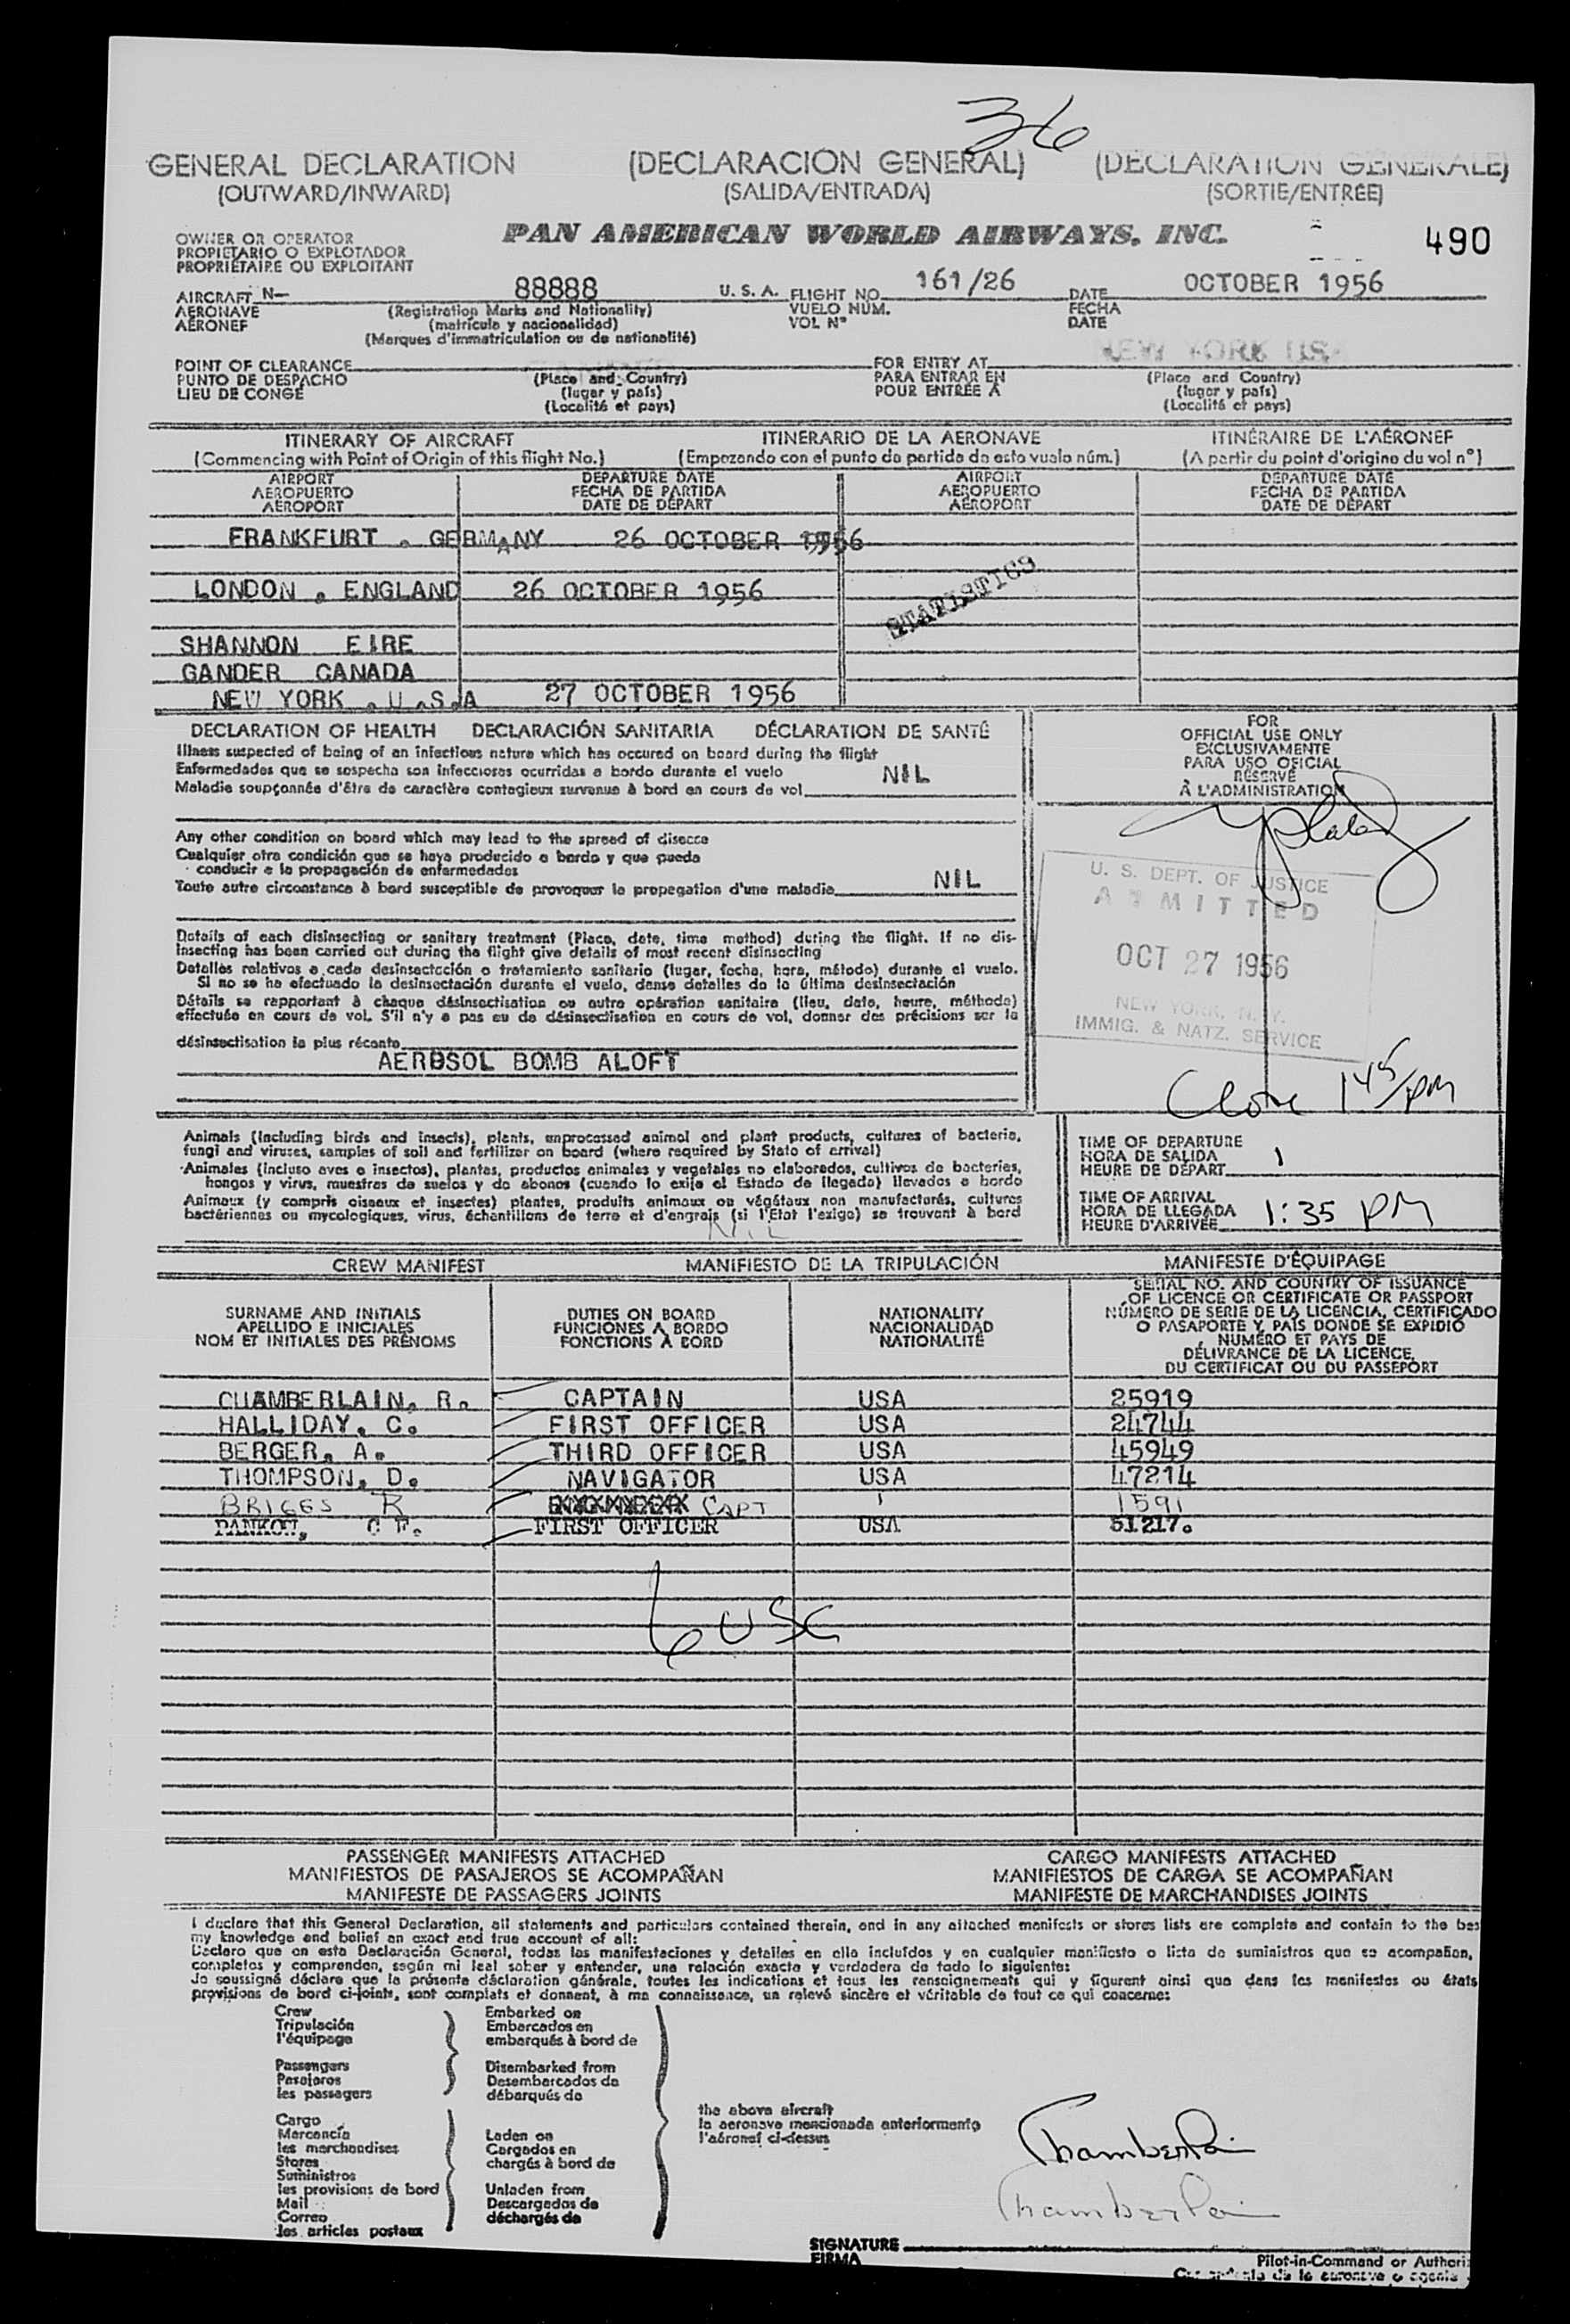 36
GENERAL DECLARATION (DECLARACIÓN GENERAL) (DÉCLARATION GÉNÉRALE)
(OUTWARD/INWARD) (SALIDA/ENTRADA) (SORTIE/ENTRÉE)
OWNER OR OPERATOR
PROPIETARIO O EXPLOTADOR
PROPRIÉTAIRE OU EXPLOITANT
PAN AMERICAN WORLD AIRWAYS, INC.
490
AIRCRAFT N- 88888 U. S. A. FLIGHT NO. 161/26 DATE OCTOBER 1956
AERONAVE (Registration Marks and Nationality) VUELO NÚM. FECHA
AÉRONEF (matrícula y nacionalidad) VOL N° DATE
(Marques d'immatriculation ou de nationalité)
POINT OF CLEARANCE FOR ENTRY AT NEW YORK USA
PUNTO DE DESPACHO (Place and Country) PARA ENTRAR EN (Place and Country)
LIEU DE CONGÉ (lugar y país) POUR ENTRÉE À (lugar y país)
(Localité et pays) (Localité et pays)
ITINERARY OF AIRCRAFT ITINERARIO DE LA AERONAVE ITINÉRAIRE DE L'AÉRONEF
(Commencing with Point of Origin of this flight No.) (Empezando con el punto de partida de esto vuelo núm.) (A partir du point d'origine du vol n°)
AIRPORT DEPARTURE DATE AIRPORT DEPARTURE DATE
AEROPUERTO FECHA DE PARTIDA AEROPUERTO FECHA DE PARTIDA
AÉROPORT DATE DE DÉPART AÉROPORT DATE DE DÉPART
FRANKFURT . GERMANY 26 OCTOBER 1956
LONDON . ENGLAND 26 OCTOBER 1956
STATISTICS
SHANNON EIRE
GANDER CANADA
NEW YORK .U.S.A 27 OCTOBER 1956
DECLARATION OF HEALTH DECLARACIÓN SANITARIA DÉCLARATION DE SANTÉ
Illness suspected of being of an infectious nature which has occured on board during the flight
Enfermedades que se sospecha son infecciosas ocurridas a bordo durante el vuelo NIL
Maladie soupçonnée d'être de caractère contagieux survenue à bord en cours de vol
Any other condition on board which may lead to the spread of disease
Cualquier otra condición que se haya producido a bordo y que pueda
conducir a la propagación de enfermedades
Toute autre circonstance à bord susceptible de provoquer la propegation d'une maladie NIL
Details of each disinsecting or sanitary treatment (Place, date, time method) during the flight. If no dis-
insecting has been carried out during the flight give details of most recent disinsecting
Detalles relativos a cada desinsectación o tratamiento sanitario (lugar, fecha, hora, método) durante el vuelo.
Si no se ha efectuado la desinsectación durante el vuelo, danse detalles de la última desinsectación
Détails se rapportant à chaque désinsectisation ou autre opération sanitaire (lieu, date, heure, méthode)
effectuée en cours de vol. S'il n'y a pas eu de désinsectisation en cours de vol, donner des précisions sur la
désinsectisation la plus récente
AEROSOL BOMB ALOFT
FOR
OFFICIAL USE ONLY
EXCLUSIVAMENTE
PARA USO OFICIAL
RÉSERVÉ
À L'ADMINISTRATION
U. S. DEPT. OF JUSTICE
ADMITTED
OCT 27 1956
NEW YORK, N. Y.
IMMIG. & NATZ. SERVICE
145/PM
Animals (including birds and insects), plants, unprocessed animal and plant products, cultures of bacteria,
fungi and viruses, samples of soil and fertilizer on board (where required by State of arrival)
Animales (incluso aves e insectos), plantas, productos animales y vegetales no elaborados, cultivos de bacteries,
hongos y virus, muestras de suelos y de abonos (cuando lo exija el Estado de llegada) llevados a bordo
Animaux (y compris oiseaux et insectes) plantes, produits animaux ou végétaux non manufacturés, cultures
bactériennes ou mycologiques, virus, échantillons de terre et d'engrais (si l'Etat l'exige) se trouvant à bord
NIL
TIME OF DEPARTURE
HORA DE SALIDA
HEURE DE DÉPART
TIME OF ARRIVAL
HORA DE LLEGADA 1:35 PM
HEURE D'ARRIVÉE
CREW MANIFEST MANIFIESTO DE LA TRIPULACIÓN MANIFESTE D'ÉQUIPAGE
SURNAME AND INITIALS
APELLIDO E INICIALES
NOM ET INITIALES DES PRÉNOMS
DUTIES ON BOARD
FUNCIONES A BORDO
FONCTIONS À BORD
NATIONALITY
NACIONALIDAD
NATIONALITÉ
SERIAL NO. AND COUNTRY OF ISSUANCE
OF LICENCE OR CERTIFICATE OR PASSPORT
NÚMERO DE SERIE DE LA LICENCIA, CERTIFICADO
O PASAPORTE Y PAÍS DONDE SE EXPIDIÓ
NUMÉRO ET PAYS DE
DÉLIVRANCE DE LA LICENCE,
DU CERTIFICAT OU DU PASSEPORT
CHAMBERLAIN, R. CAPTAIN USA 25919
HALLIDAY, C. FIRST OFFICER USA 24744
BERGER, A. THIRD OFFICER USA 45949
THOMPSON, D. NAVIGATOR USA 47214
BRIGGS R CAPT 1591
C F. FIRST OFFICER USA 51217.
6 USC
PASSENGER MANIFESTS ATTACHED CARGO MANIFESTS ATTACHED
MANIFIESTOS DE PASAJEROS SE ACOMPAÑAN MANIFIESTOS DE CARGA SE ACOMPAÑAN
MANIFESTE DE PASSAGERS JOINTS MANIFESTE DE MARCHANDISES JOINTS
I declare that this General Declaration, all statements and particulars contained therein, and in any attached manifests or stores lists are complete and contain to the bes
my knowledge and belief an exact and true account of all:
Declaro que en esta Declaración General, todas las manifestaciones y detalles en ella incluídos y en cualquier manifiesto o lista de suministros que se acompañan,
completos y comprenden, según mi leal saber y entender, una relación exacta y verdadera de todo lo siguiente:
Je soussigné déclare que la présente déclaration générale, toutes les indications et tous les renseignements qui y figurent ainsi que dans les manifestes ou états
provisions de bord ci-joints, sont complets et donnent, à ma connaissance, un relevé sincère et véritable de tout ce qui concerne:
Crew
Tripulación
l'équipage
Passengers
Pasajeros
les passagers
Cargo
Mercancía
les marchandises
Stores
Suministros
les provisions de bord
Mail
Correo
les articles postaux
Embarked on
Embarcados en
embarqués à bord de
Disembarked from
Desembarcados de
débarqués de
Laden on
Cargados en
chargés à bord de
Unladen from
Descargados de
déchargés de
the above aircraft
la aeronave mencionada anteriormente
l'aéronef ci-dessus
Chamberlai
Chamberlai
SIGNATURE
FIRMA
Pilot-in-Command or Authori
de la aeronave o agente